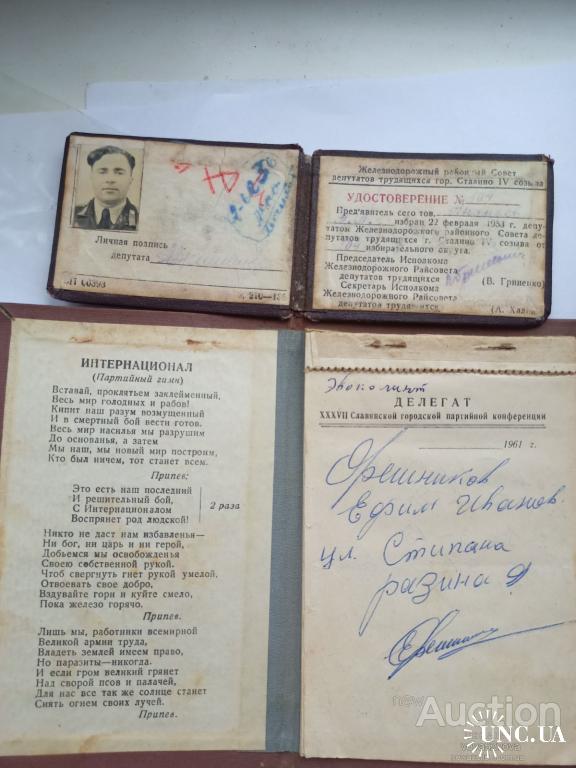 Личная подпись
депутата
Железнодорожный районный Совет
депутатов трудящихся гор. Сталино IV созыва
УДОСТОВЕРЕНИЕ №
Пред'явитель сего тов.
избран 22 февраля 1953 г. депу-
татом Железнодорожного районного Совета де-
путатов трудящихся г. Сталино IV созыва от
избирательного округа.
Председатель Исполкома
Железнодорожного Райсовета
депутатов трудящихся
(В. Гриненко)
Секретарь Исполкома
Железнодорожного Райсовета
депутатов трудящихся
ИНТЕРНАЦИОНАЛ
(Партийный гимн)
Вставай, проклятьем заклейменный,
Весь мир голодных и рабов!
Кипит наш разум возмущенный
И в смертный бой вести готов.
Весь мир насилья мы разрушим
До основанья, а затем
Мы наш, мы новый мир построим,
Кто был ничем, тот станет всем.
Припев:
Это есть наш последний
И решительный бой,
С Интернационалом
Воспрянет род людской!
2 раза
Никто не даст нам избавленья—
Ни бог, ни царь и ни герой,
Добьемся мы освобожденья
Своею собственной рукой.
Чтоб свергнуть гнет рукой умелой,
Отвоевать свое добро,
Вздувайте горн и куйте смело,
Пока железо горячо.
Припев.
Лишь мы, работники всемирной
Великой армии труда,
Владеть землей имеем право,
Но паразиты—никогда.
И если гром великий грянет
Над сворой псов и палачей,
Для нас все так же солнце станет
Сиять огнем своих лучей.
Припев.
ДЕЛЕГАТ
XXXVII Славянской городской партийной конференции
1961 г.
Орешников
Ефим Иванов.
ул. Степана
разина
Auction
UNC.UA